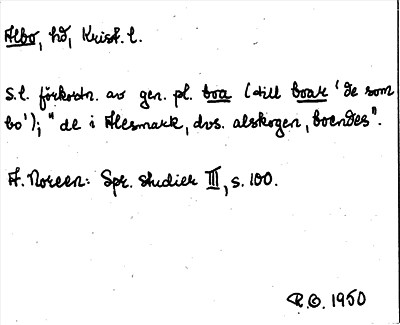 Albo, hd, Krist. l.
S.l. förkortn. av gen. pl. boa (till boar 'de som
bo'); "de i Alesmark, dvs. alskogen, boendes".
A. Noreen: Spr. studier III, s. 100.
R.O. 1950